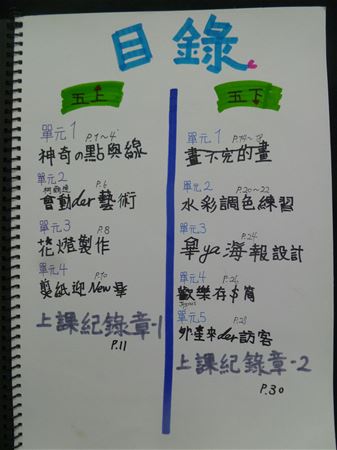 目錄
五上
單元1 P.1~4
神奇の點與線
單元2 P.6
會動der藝術
單元3 P.8
花燈製作
單元4 P.10
剪紙迎New年
上課紀錄章-1
P.11
五下
單元1
畫不完的畫
單元2 P.20~22
水彩調色練習
單元3 P.24
畢ya海報設計
單元4 P.26
歡樂存$筒
單元5 P.28
外星來der訪客
上課紀錄章-2
P.30